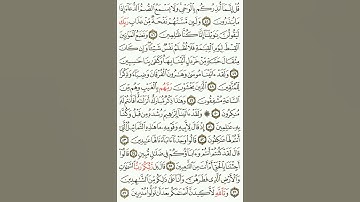 قُلْ إِنَّمَا أُنذِرُكُم بِالْوَحْيِ وَلَا يَسْمَعُ الصُّمُّ الدُّعَاءَ إِذَا
مَا يُنذَرُونَ ٤٥ وَلَئِن مَّسَّتْهُمْ نَفْحَةٌ مِّنْ عَذَابِ رَبِّكَ
لَيَقُولُنَّ يَٰوَيْلَنَا إِنَّا كُنَّا ظَٰلِمِينَ ٤٦ وَنَضَعُ الْمَوَٰزِينَ
الْقِسْطَ لِيَوْمِ الْقِيَٰمَةِ فَلَا تُظْلَمُ نَفْسٌ شَيْئًا وَإِن كَانَ
مِثْقَالَ حَبَّةٍ مِّنْ خَرْدَلٍ أَتَيْنَا بِهَا وَكَفَىٰ بِنَا حَٰسِبِينَ
٤٧ وَلَقَدْ ءَاتَيْنَا مُوسَىٰ وَهَٰرُونَ الْفُرْقَانَ وَضِيَاءً وَذِكْرًا
لِّلْمُتَّقِينَ ٤٨ الَّذِينَ يَخْشَوْنَ رَبَّهُم بِالْغَيْبِ وَهُم مِّنَ
السَّاعَةِ مُشْفِقُونَ ٤٩ وَهَٰذَا ذِكْرٌ مُّبَارَكٌ أَنزَلْنَٰهُ أَفَأَنتُمْ لَهُ
مُنكِرُونَ ٥٠ ۞ وَلَقَدْ ءَاتَيْنَا إِبْرَٰهِيمَ رُشْدَهُ مِن قَبْلُ وَكُنَّا
بِهِ عَٰلِمِينَ ٥١ إِذْ قَالَ لِأَبِيهِ وَقَوْمِهِ مَا هَٰذِهِ التَّمَاثِيلُ الَّتِي
أَنتُمْ لَهَا عَٰكِفُونَ ٥٢ قَالُوا وَجَدْنَا ءَابَاءَنَا لَهَا عَٰبِدِينَ ٥٣
قَالَ لَقَدْ كُنتُمْ أَنتُمْ وَءَابَاؤُكُمْ فِي ضَلَٰلٍ مُّبِينٍ ٥٤ قَالُوا
أَجِئْتَنَا بِالْحَقِّ أَمْ أَنتَ مِنَ اللَّٰعِبِينَ ٥٥ قَالَ بَل رَّبُّكُمْ رَبُّ السَّمَٰوَٰتِ
وَالْأَرْضِ الَّذِي فَطَرَهُنَّ وَأَنَا عَلَىٰ ذَٰلِكُم مِّنَ الشَّٰهِدِينَ
٥٦ وَتَاللَّهِ لَأَكِيدَنَّ أَصْنَٰمَكُم بَعْدَ أَن تُوَلُّوا مُدْبِرِينَ ٥٧